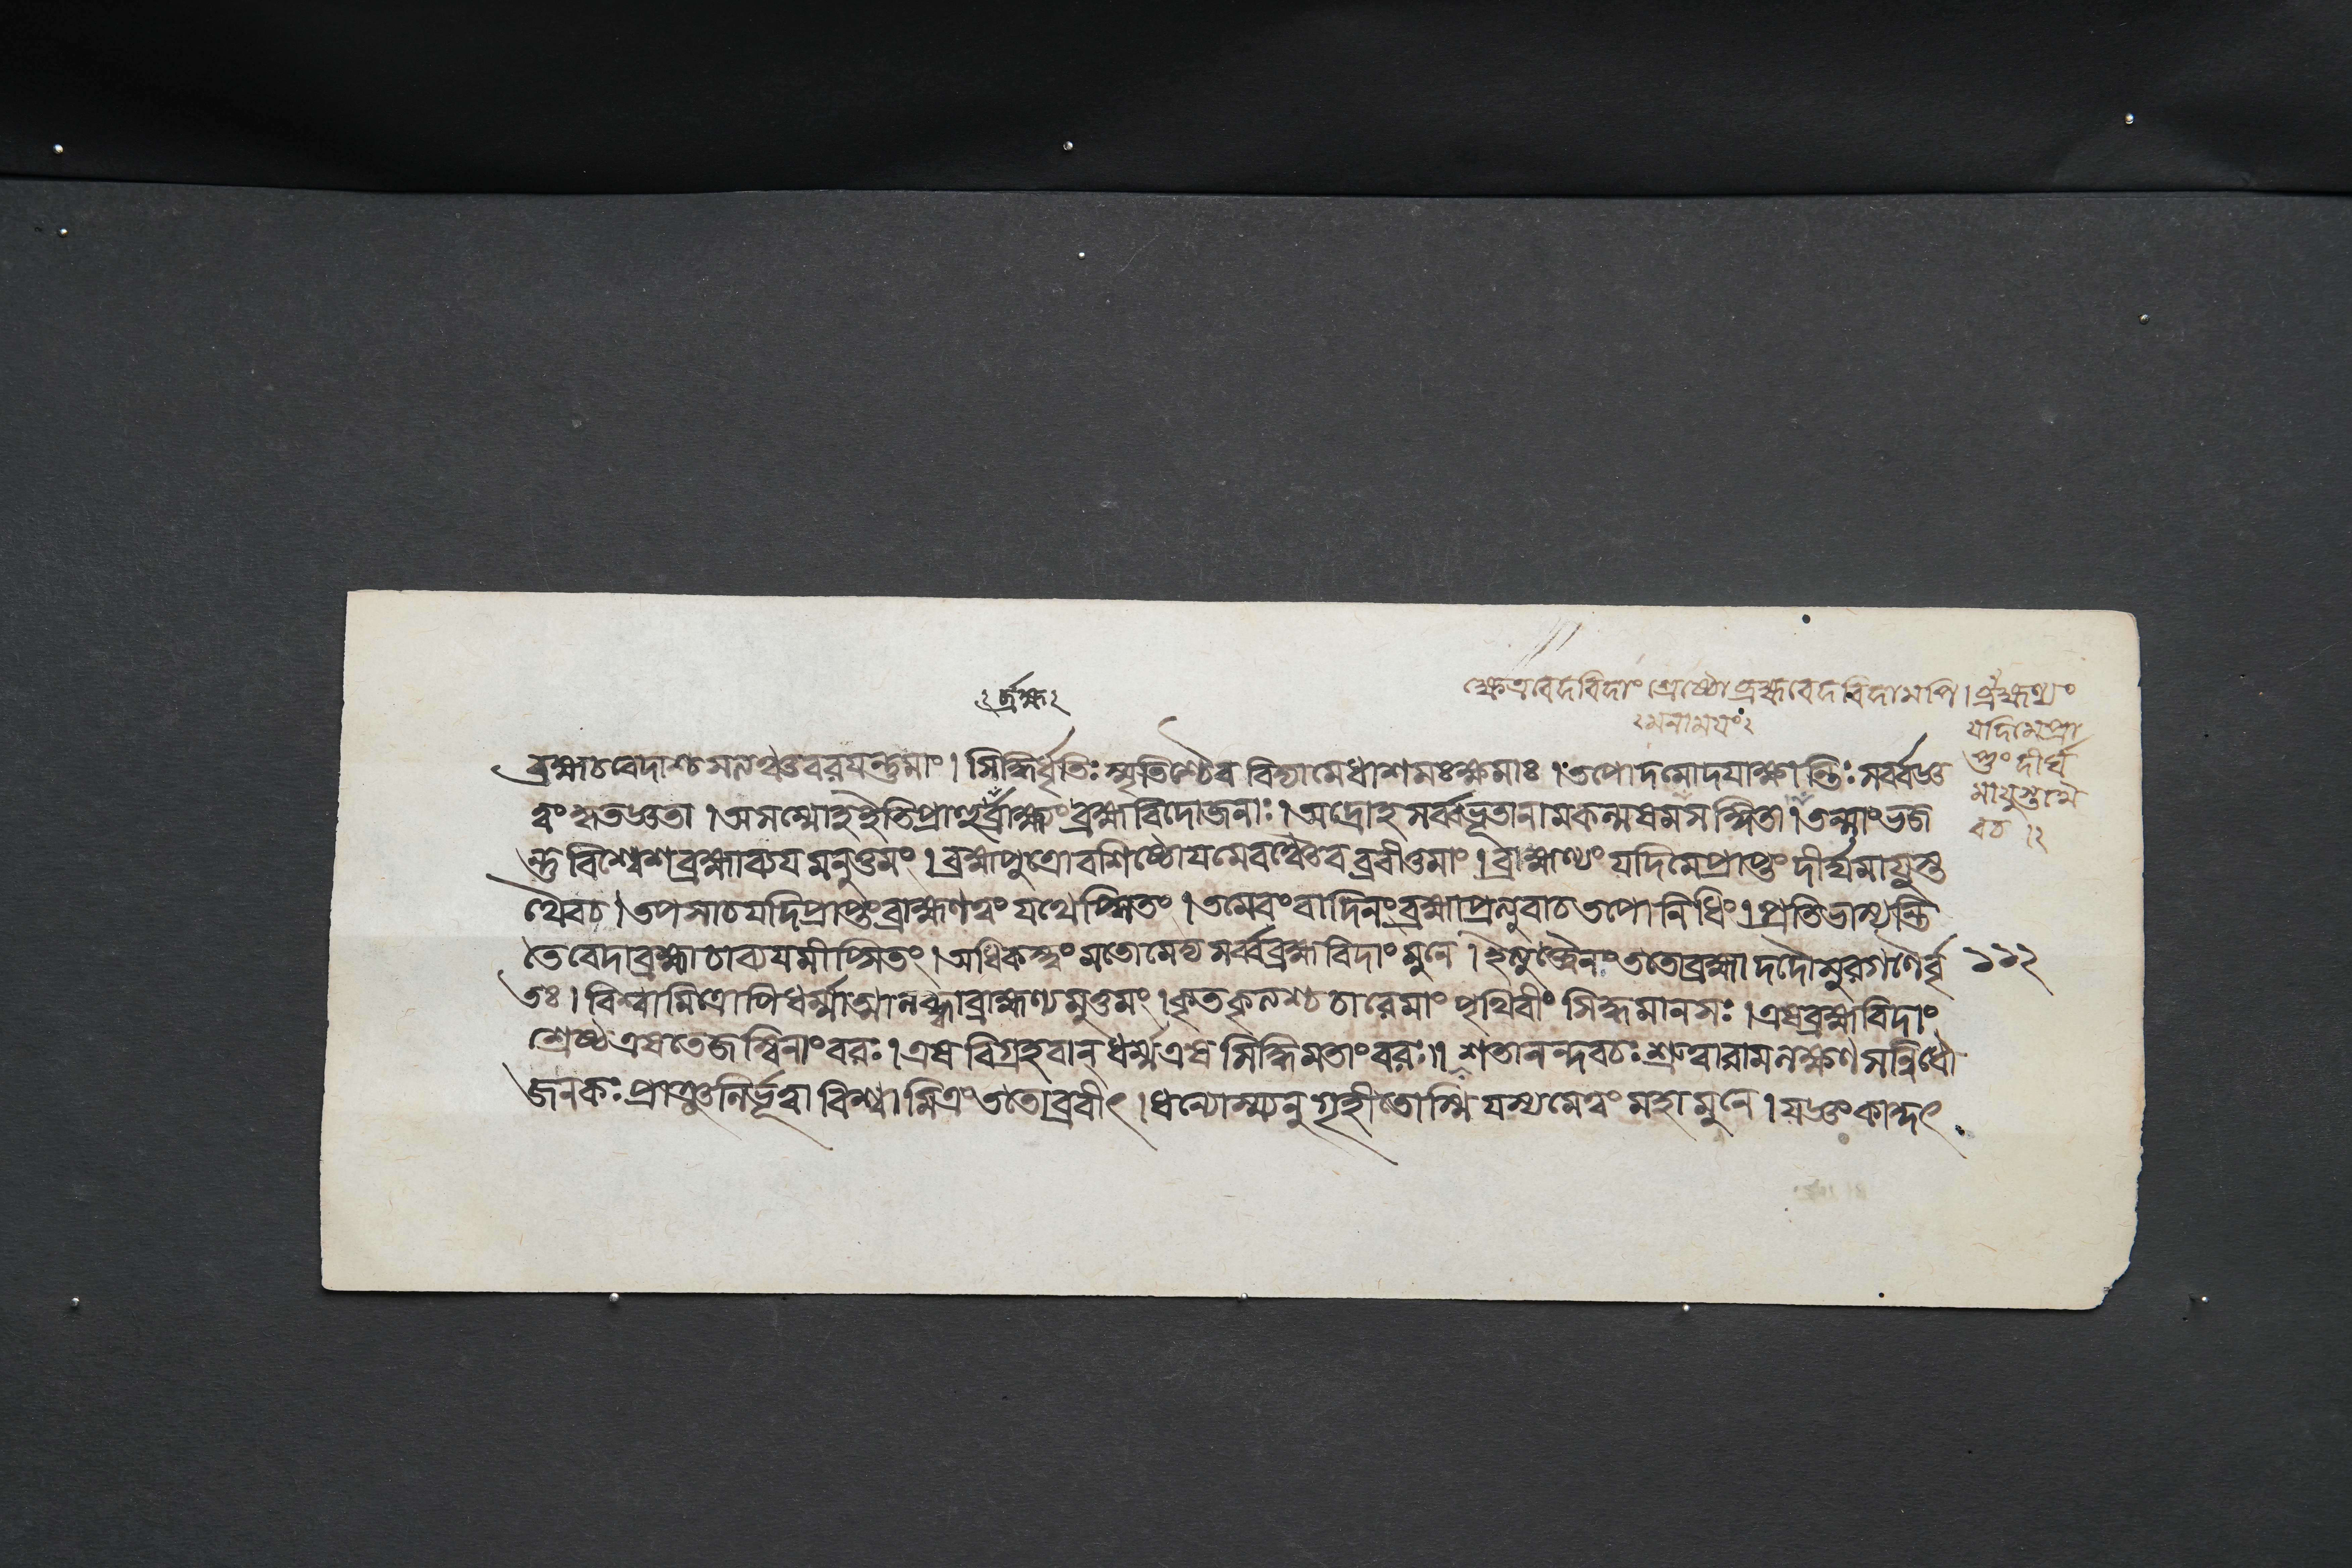 ক্ষেত্রবেদবিদাং শ্রেষ্ঠো ব্রহ্মবেদবিদামপি। ব্রাহ্মণ্যং
যদিমেপ্রা
প্তুং দীর্ঘ
মায়ুস্তথৈ
বচ ।২
২মনাময়ং২
ব্রহ্মচবেদাশ্চ সনত্বঞ্চবরয়ন্তুমাং। সিদ্ধির্ধৃতিঃ স্মৃতিশ্চৈব বিদ্যামেধাশমঃক্ষমাঃ । তপোদমোদযাক্ষান্তিঃ সর্ব্বজ্ঞ
ত্বংকৃতজ্ঞতা । অসম্মোহইতিপ্রাহুর্ব্রাহ্ম্যং ব্রহ্মবিদোজনাঃ । অদ্রোহ সর্ব্বভূতানামকল্মষমসংজ্ঞিতা। তন্মাংভজ
ন্তু বিশ্বেশব্রহ্মাব্যয়মনুত্তমং । ব্রহ্মপুত্রোবশিষ্ঠোযমেবঞ্চৈব ব্রবীতুমাং । ব্রাহ্মণ্যং যদিমেপ্রাপ্তুং দীর্ঘমায়ুস্ত
থৈবচ । তপসাচযদিপ্রাপ্তং ব্রাহ্মণত্বং যথেপ্সিতং । তমেবংবাদিনং ব্রহ্মাপ্রত্যুবাচ তপোনিধিং । প্রতিভাস্যন্তি
তেবেদাব্রহ্মচাব্যয়মীপ্সিতং । অধিকস্ত্বং মতোমেদ্য সর্ব্বব্রহ্মবিদাং মুনে । ইত্যুক্ত্বৈনং ততোব্রহ্মা দদৌসুরগণৈর্বৃ ১১২
তঃ । বিশ্বামিত্রোপি ধর্ম্মাত্মা লব্ধ্বাব্রাহ্মণ্যমুত্তমং । কৃতকৃত্যশ্চচারেমাং পৃথিবীং সিদ্ধমানসঃ । এষব্রহ্মবিদাং
শ্রেষ্ঠএষতেজস্বিনাংবরঃ । এষ বিগ্রহবান্ ধর্ম্মএষ সিদ্ধিমতাংবরঃ ।। শতানন্দবচঃ শ্রুত্বারামলক্ষ্মণসন্নিধৌ
জনকঃ প্রাঞ্জলির্ভূত্বা বিশ্বামিত্রং ততোব্রবীৎ । ধন্যোস্ম্যনুগৃহীতোস্মি যস্যমেত্বং মহামুনে । যজ্ঞং